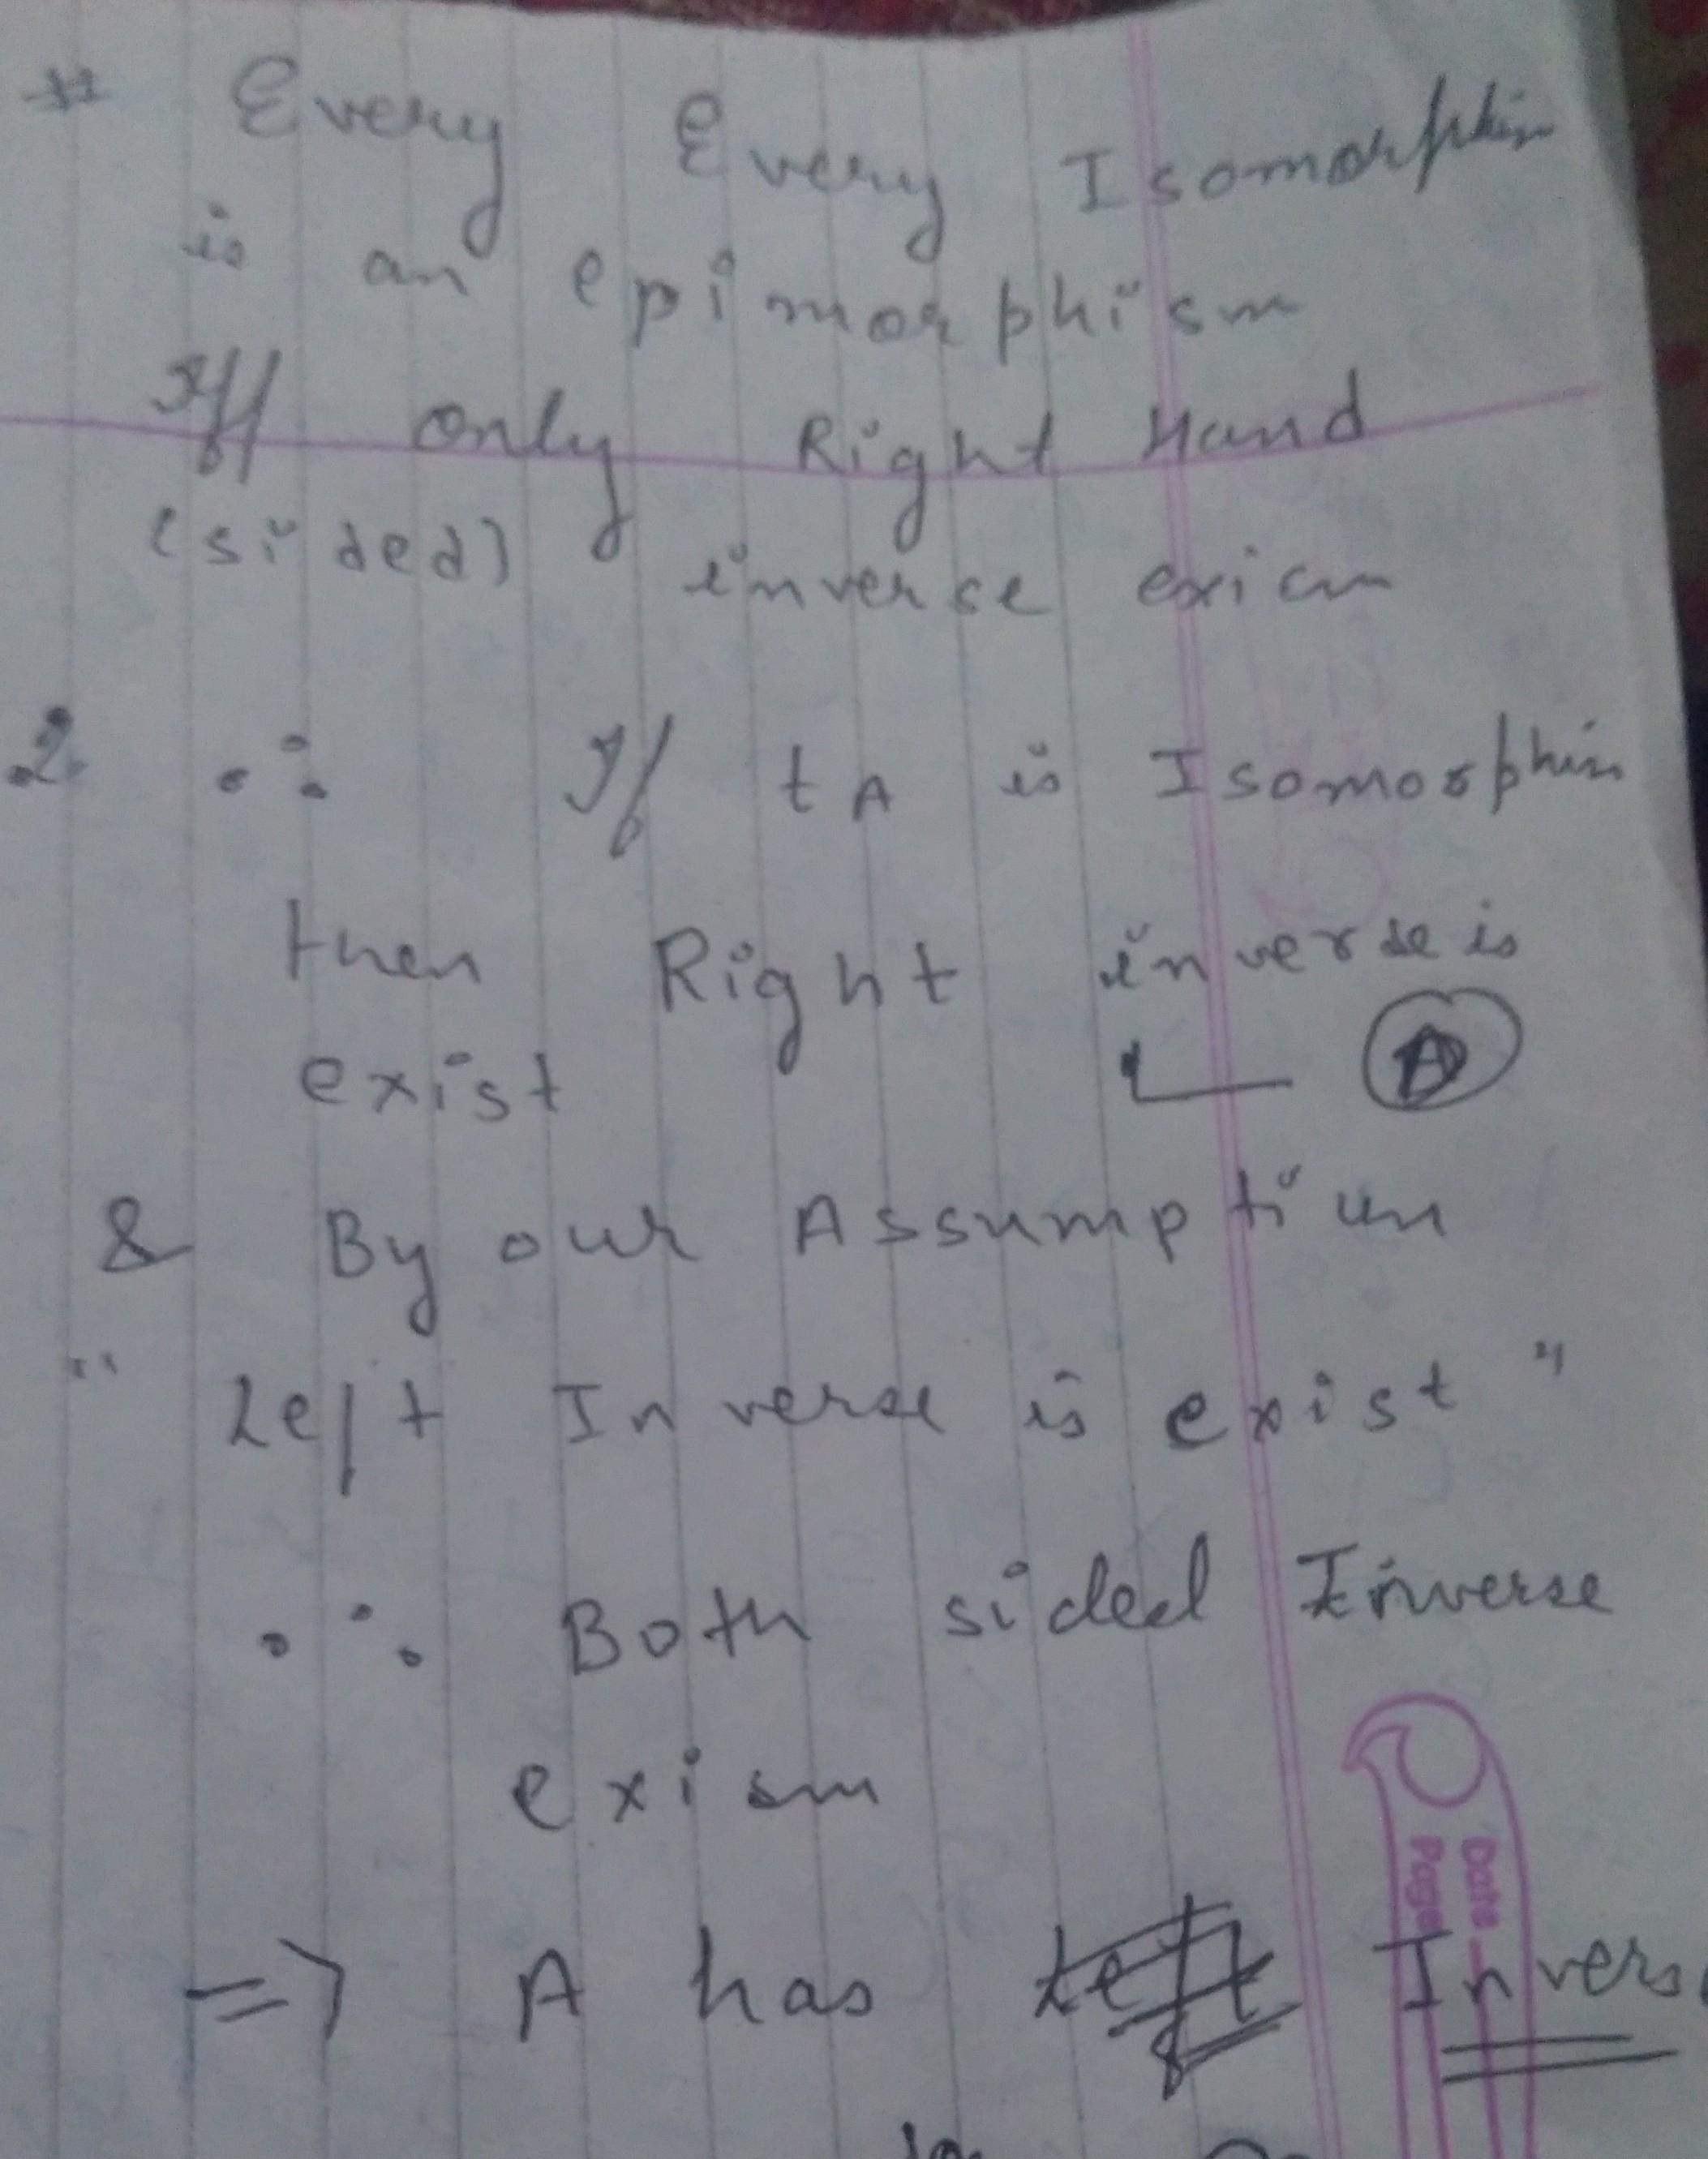 # Every Every Isomorphism
is an epimorphism
Iff only Right Hand
(sided) inverse exism
2. ∴ If tA is Isomorphism
then Right inverse is
exist
A
& By our Assumption
" Left Inverse is exist "
∴ Both sided Inverse
exism
Date
Page
⇒ A has Invers